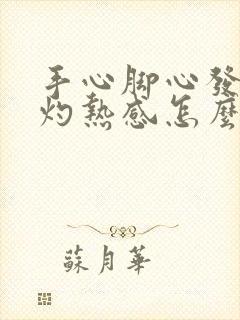 手心脚心發
灼熱感怎麼
蘇月華